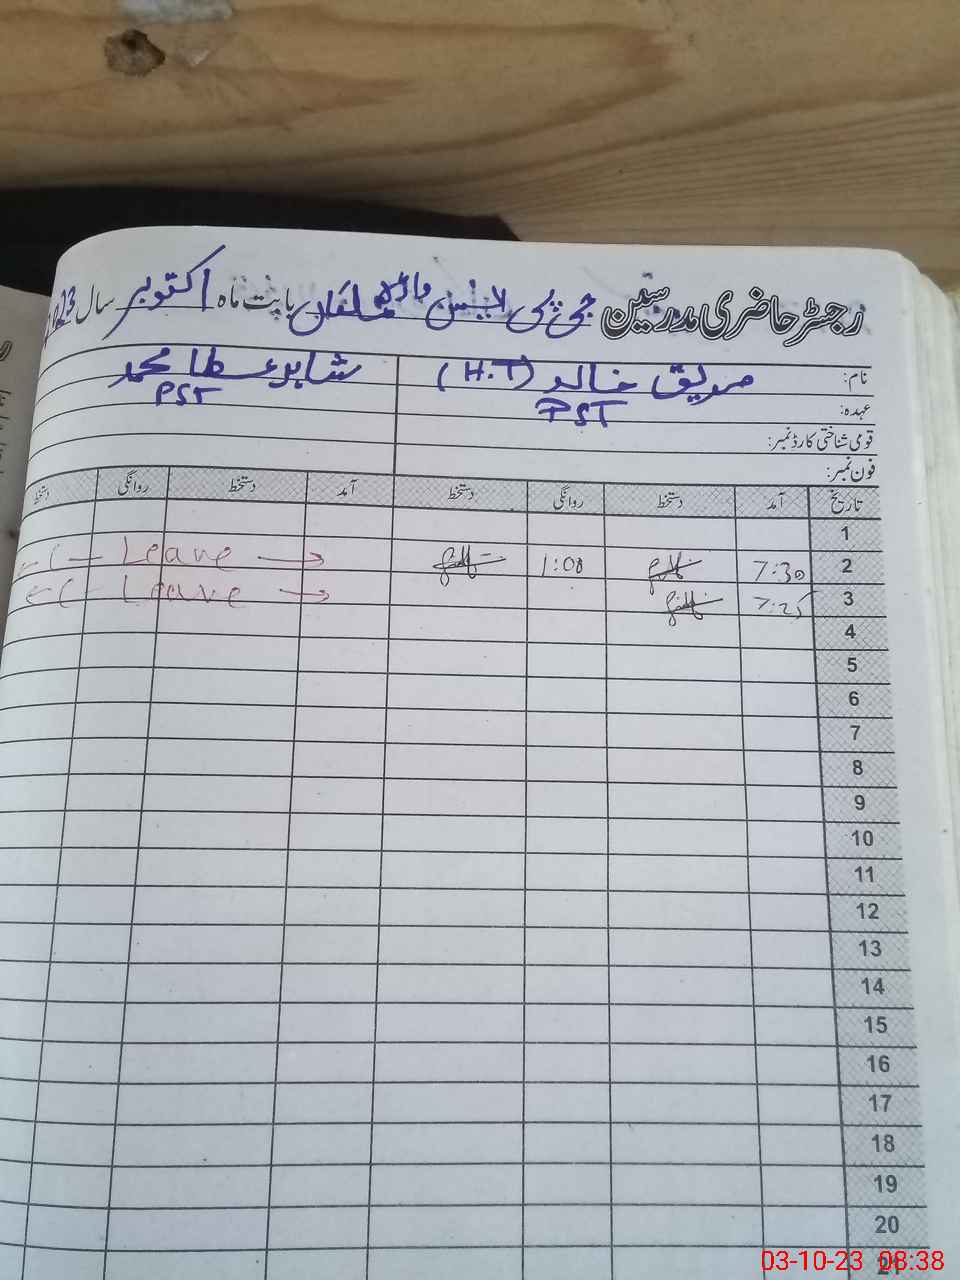 رجسٹر حاضری مدرسین جی پی بابت ماہ اکتوبر سال
نام: صدیق خالد (H.T) شاہد عطا محمد
عہدہ: PST PST
قومی شناختی کارڈ نمبر:
فون نمبر:
تاریخ آمد دستخط روانگی دستخط آمد دستخط روانگی دستخط
1
2 7:30 1:00 Leave
3 7:25 Leave
4
5
6
7
8
9
10
11
12
13
14
15
16
17
18
19
20
21
03-10-23 08:38